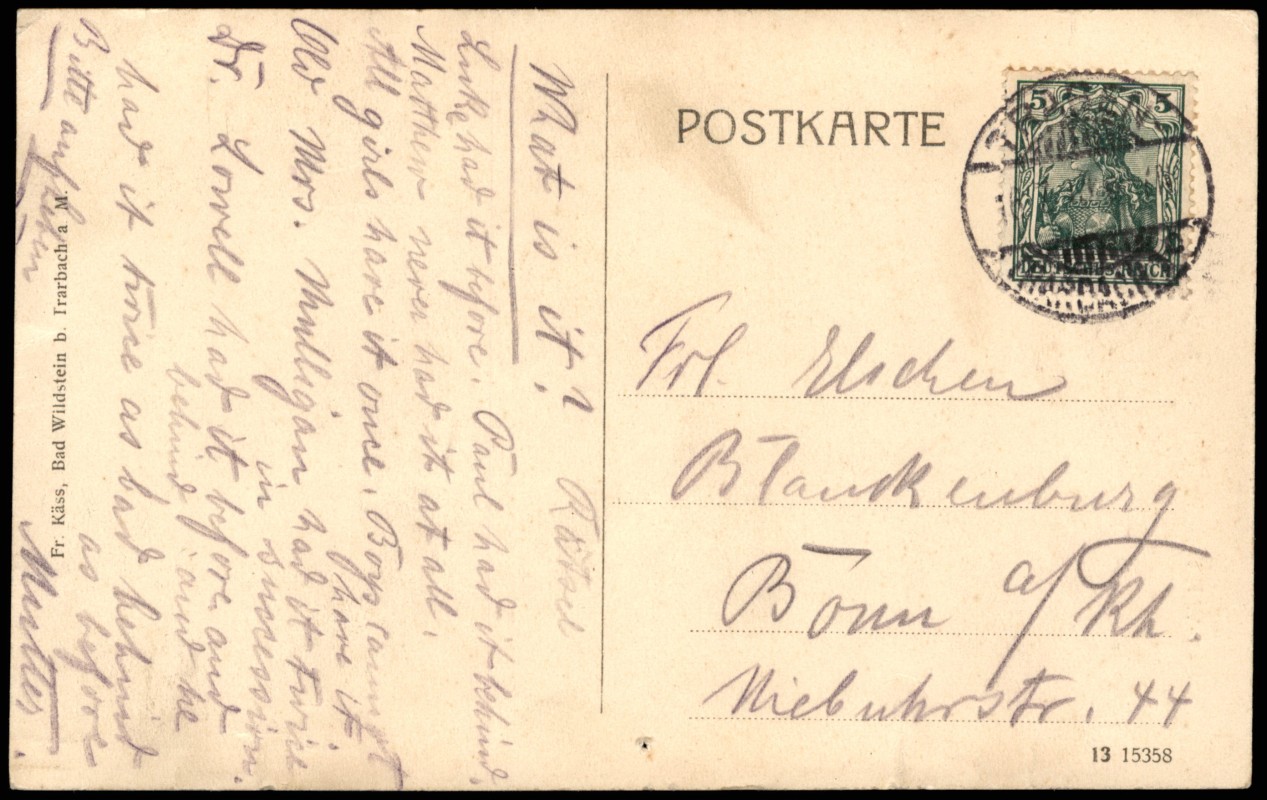 What is it? Rätsel
Luke had it before. Paul had it behind.
Matthew never had it at all.
All girls have it once. Boys cannot
have it.
Old Mrs. Mulligan had it twice
in succession.
Dr. Lowell had it before and
behind and he
had it twice as bad behind
as before
Bitte aufheben
Mutter.
Fr. Käss, Bad Wildstein b. Trarbach a M.
POSTKARTE
5 5
DEUTSCHES REICH
Frl. Elschen
Blanckenburg
Bonn a/Rh.
Niebuhrstr. 44
13 15358